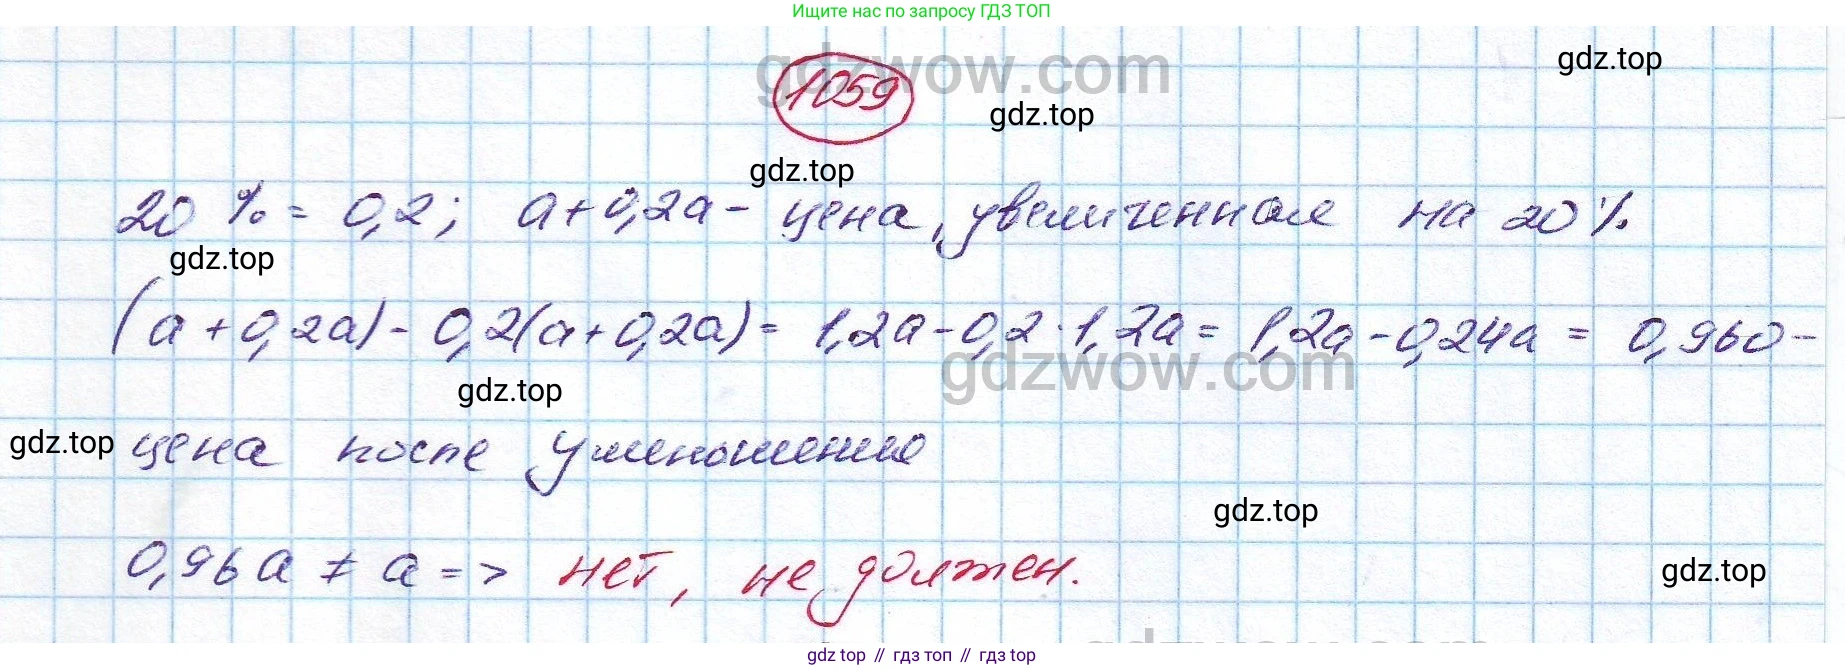 Ищите нас по запросу ГДЗ ТОП
gdzwow.com
gdz.top
1059
gdz.top
gdz.top
20 % = 0,2; a + 0,2a - цена, увеличенная на 20 %
gdz.top
(a + 0,2a) - 0,2(a + 0,2a) = 1,2a - 0,2 · 1,2a = 1,2a - 0,24a = 0,960 -
gdzwow.com
gdz.top
gdz.top
цена после уменьшения
gdz.top
0,96a ≠ a => нет, не должен.
gdz.top
gdzwow.com
gdz top // гдз топ // гдз top